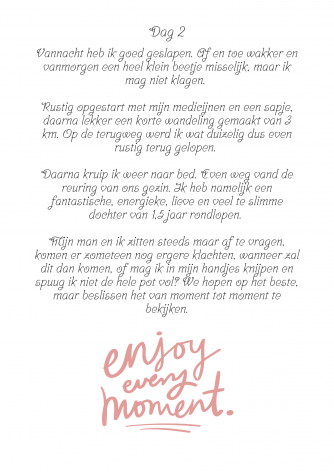 Dag 2
Vannacht heb ik goed geslapen. Af en toe wakker en
vanmorgen een heel klein beetje misselijk, maar ik
mag niet klagen.
Rustig opgestart met mijn medicijnen en een sapje,
daarna lekker een korte wandeling gemaakt van 3
km. Op de terugweg werd ik wat duizelig dus even
rustig terug gelopen.
Daarna kruip ik weer naar bed. Even weg vand de
reuring van ons gezin. Ik heb namelijk een
fantastische, energieke, lieve en veel te slimme
dochter van 1,5 jaar rondlopen.
Mijn man en ik zitten steeds maar af te vragen,
komen er zometeen nog ergere klachten, wanneer zal
dit dan komen, of mag ik in mijn handjes knijpen en
spuug ik niet de hele pot vol? We hopen op het beste,
maar beslissen het van moment tot moment te
bekijken.
enjoy
every
moment.